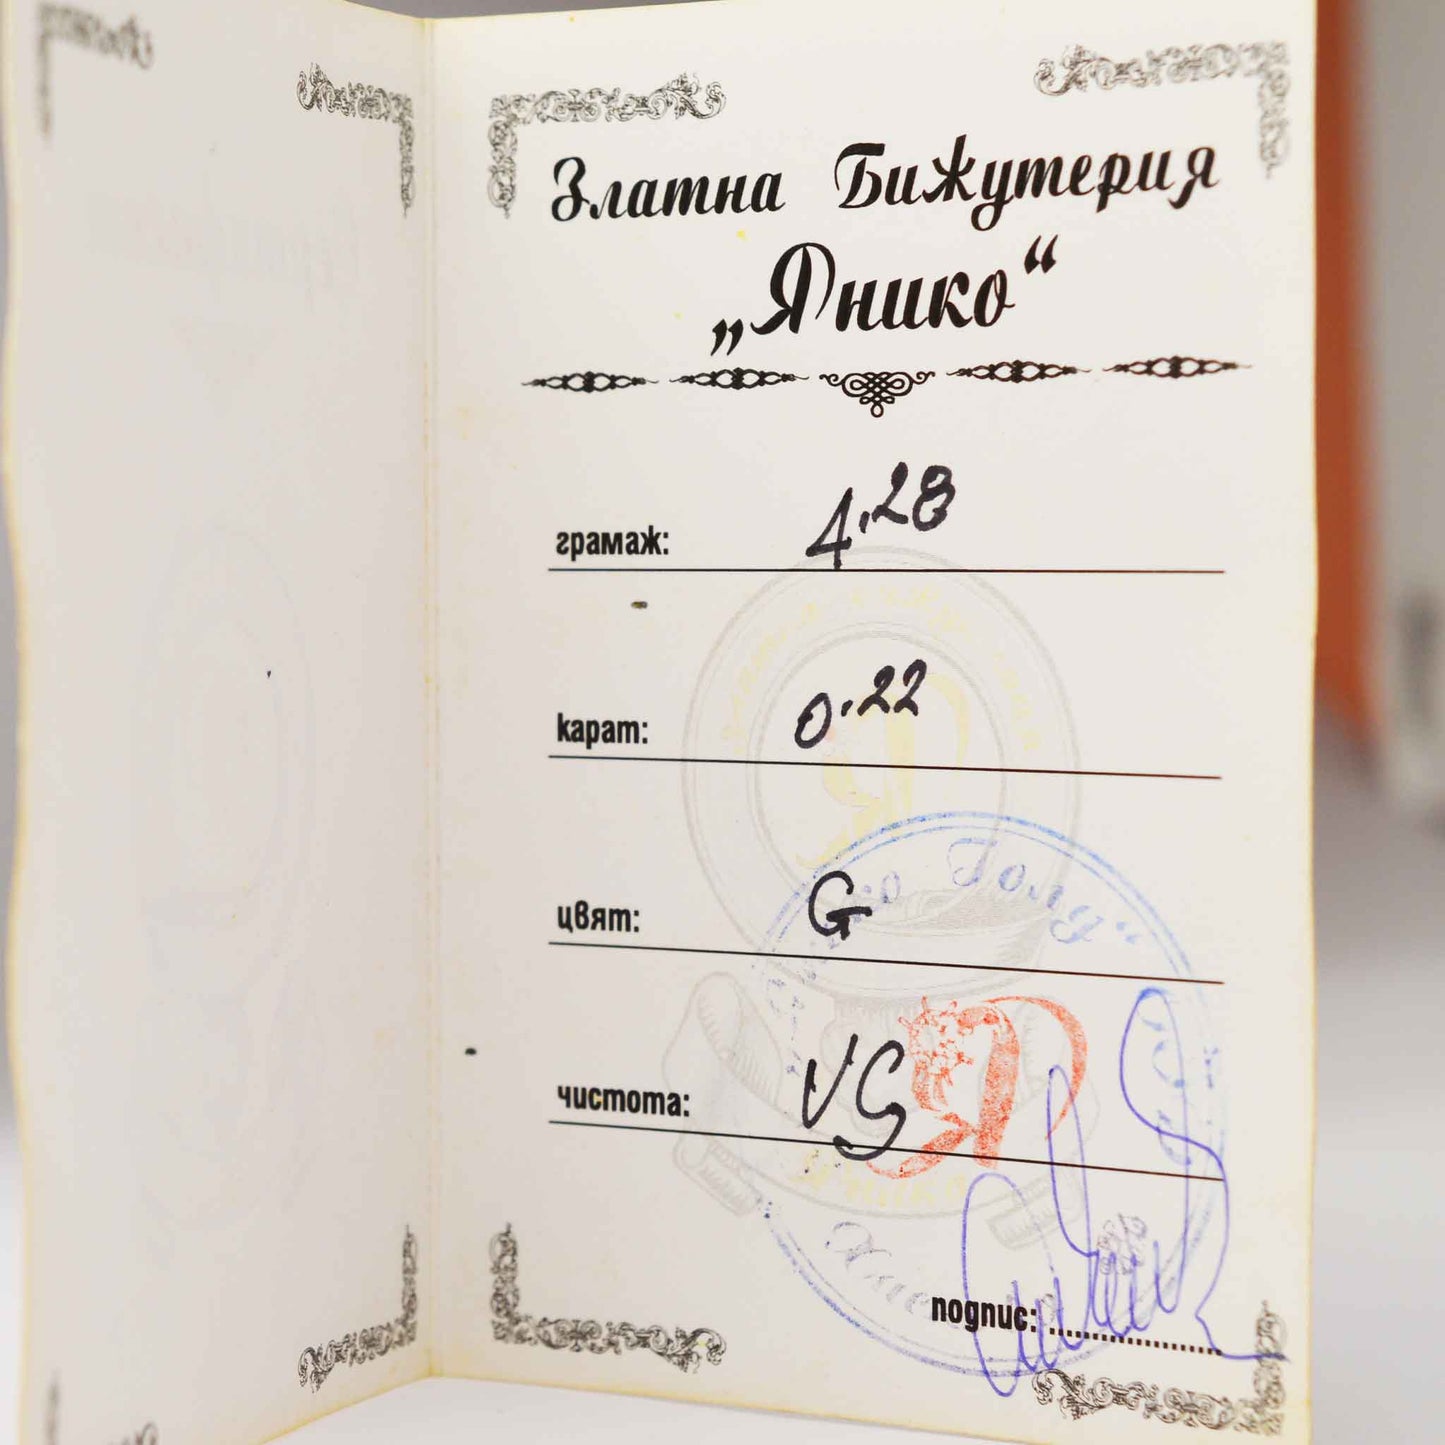 Златна Бижутерия
„Янико“
грамаж: 4.28
карат: 0.22
цвят: G
чистота: VS
Голд“
подпис: